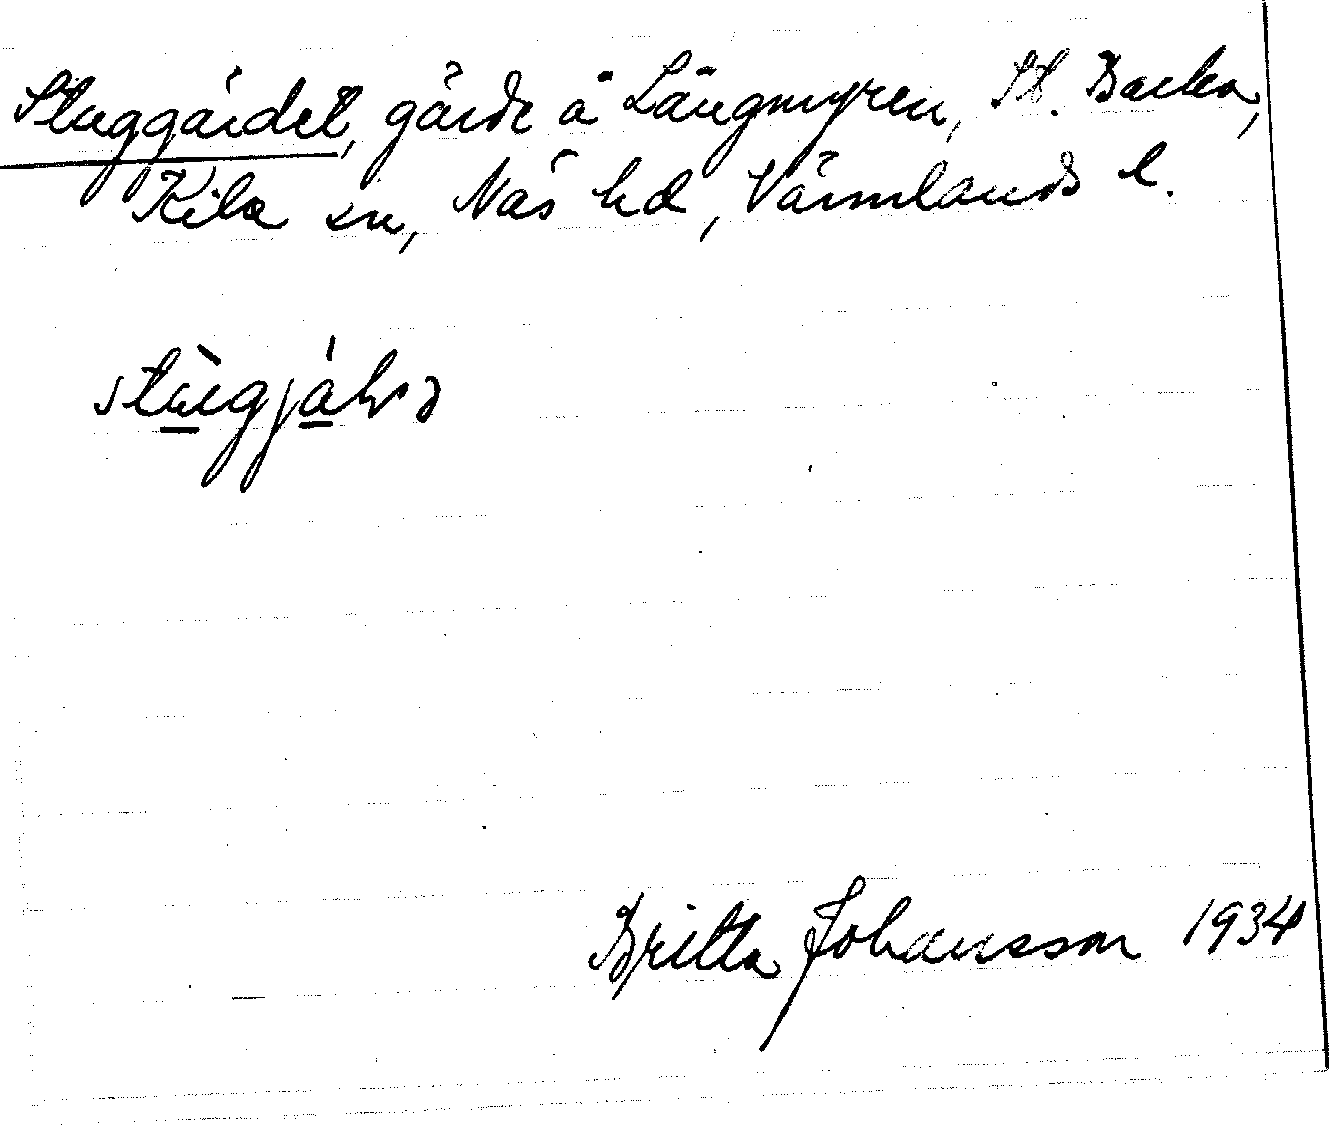 Stuggärdet, gärde å Långmyren, St. Backa,
Kila sn, Näs hd, Värmlands l.
Britta Johansson 1934